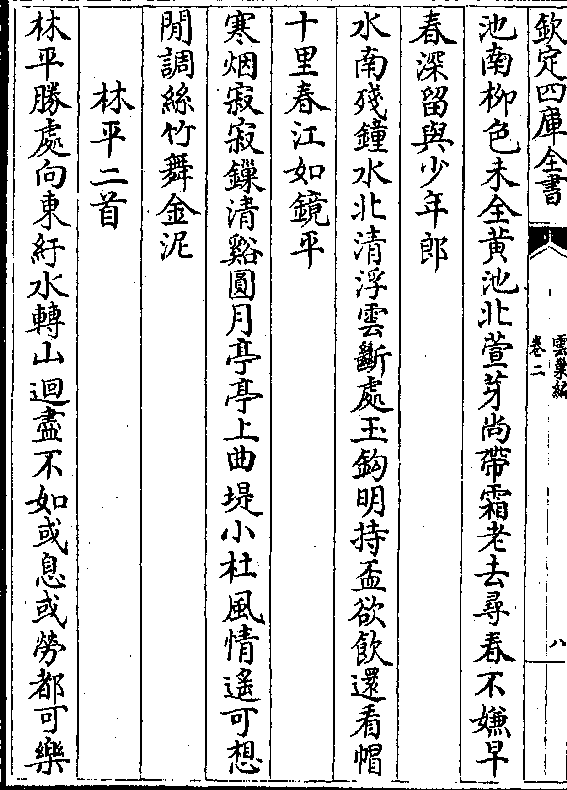 欽定四庫全書
雲巢編
卷二
八
池南柳色未全黃池北萱芽尚帶霜老去尋春不嫌早
春深留與少年郎
水南殘鐘水北清浮雲斷處玉鉤明持盃欲飲還看帽
十里春江如鏡平
寒烟寂寂鏁清谿圓月亭亭上曲堤小杜風情遙可想
閒調絲竹舞金泥
林平二首
林平勝處向東紆水轉山迴盡不如或息或勞都可樂